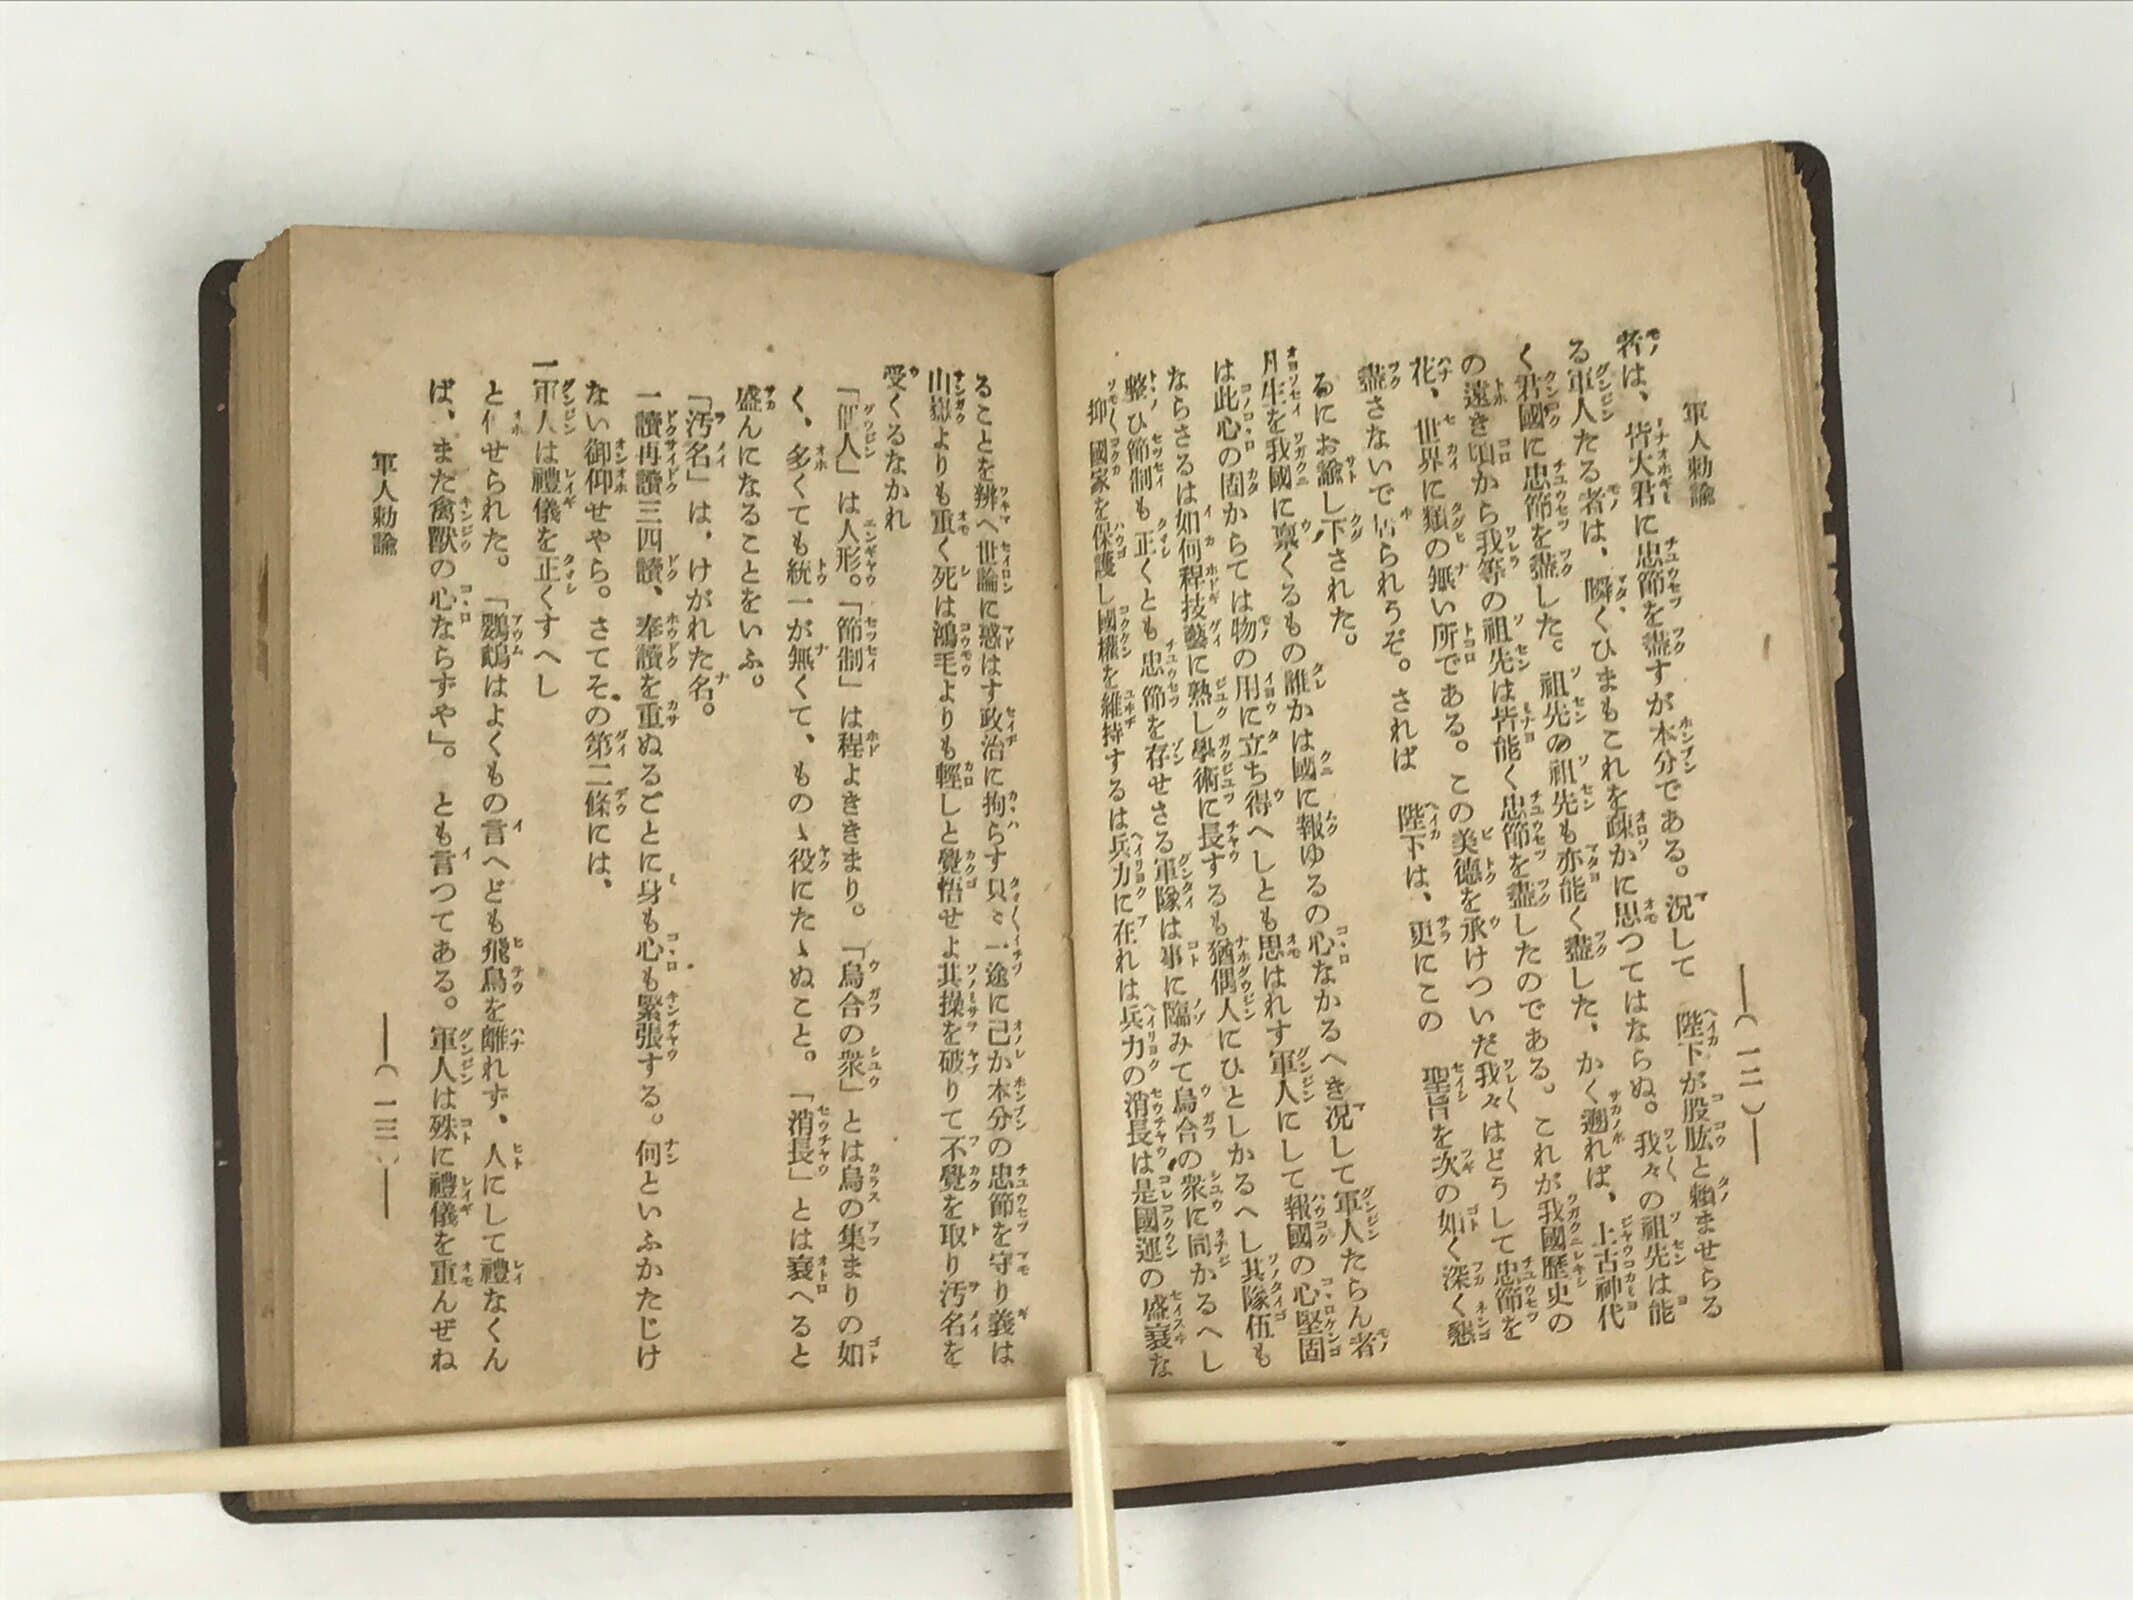 軍人勅諭
―(一二)―
者は、皆大君に忠節を盡すが本分である。況して 陛下が股肱と頼ませらる
る軍人たる者は、瞬くひまもこれを疎かに思つてはならぬ。我々の祖先は能
く君國に忠節を盡した。祖先の祖先も亦能く盡した、かく遡れば、上古神代
の遠き頃から我等の祖先は皆能く忠節を盡したのである。これが我國歴史の
花、世界に類の無い所である。この美徳を承けついだ我々はどうして忠節を
盡さないで居られうぞ。されば 陛下は、更にこの 聖旨を次の如く深く懇
るにお諭し下された。
凡生を我國に禀くるもの誰かは國に報ゆるの心なかるへき況して軍人たらん者
は此心の固からては物の用に立ち得へしとも思はれす軍人にして報國の心堅固
ならさるは如何程技藝に熟し學術に長するも猶偶人にひとしかるへし其隊伍も
整ひ節制も正くとも忠節を存せさる軍隊は事に臨みて烏合の衆に同かるへし
抑國家を保護し國權を維持するは兵力に在れは兵力の消長は是國運の盛衰な
ることを辨へ世論に惑はす政治に拘らす只々一途に己か本分の忠節を守り義は
山嶽よりも重く死は鴻毛よりも輕しと覺悟せよ其操を破りて不覺を取り汚名を
受くるなかれ
「偶人」は人形。「節制」は程よききまり。「烏合の衆」とは烏の集まりの如
く、多くても統一が無くて、ものゝ役にたゝぬこと。「消長」とは衰へると
盛んになることをいふ。
「汚名」は、けがれた名。
一讀再讀三四讀、奉讀を重ぬるごとに身も心も緊張する。何といふかたじけ
ない御仰せやら。さてその第二條には、
一軍人は禮儀を正くすへし
と仰せられた。「鸚鵡はよくもの言へども飛鳥を離れず、人にして禮なくん
ば、また禽獸の心ならずや」。とも言つてある。軍人は殊に禮儀を重んぜね
軍人勅諭
―(一三)―